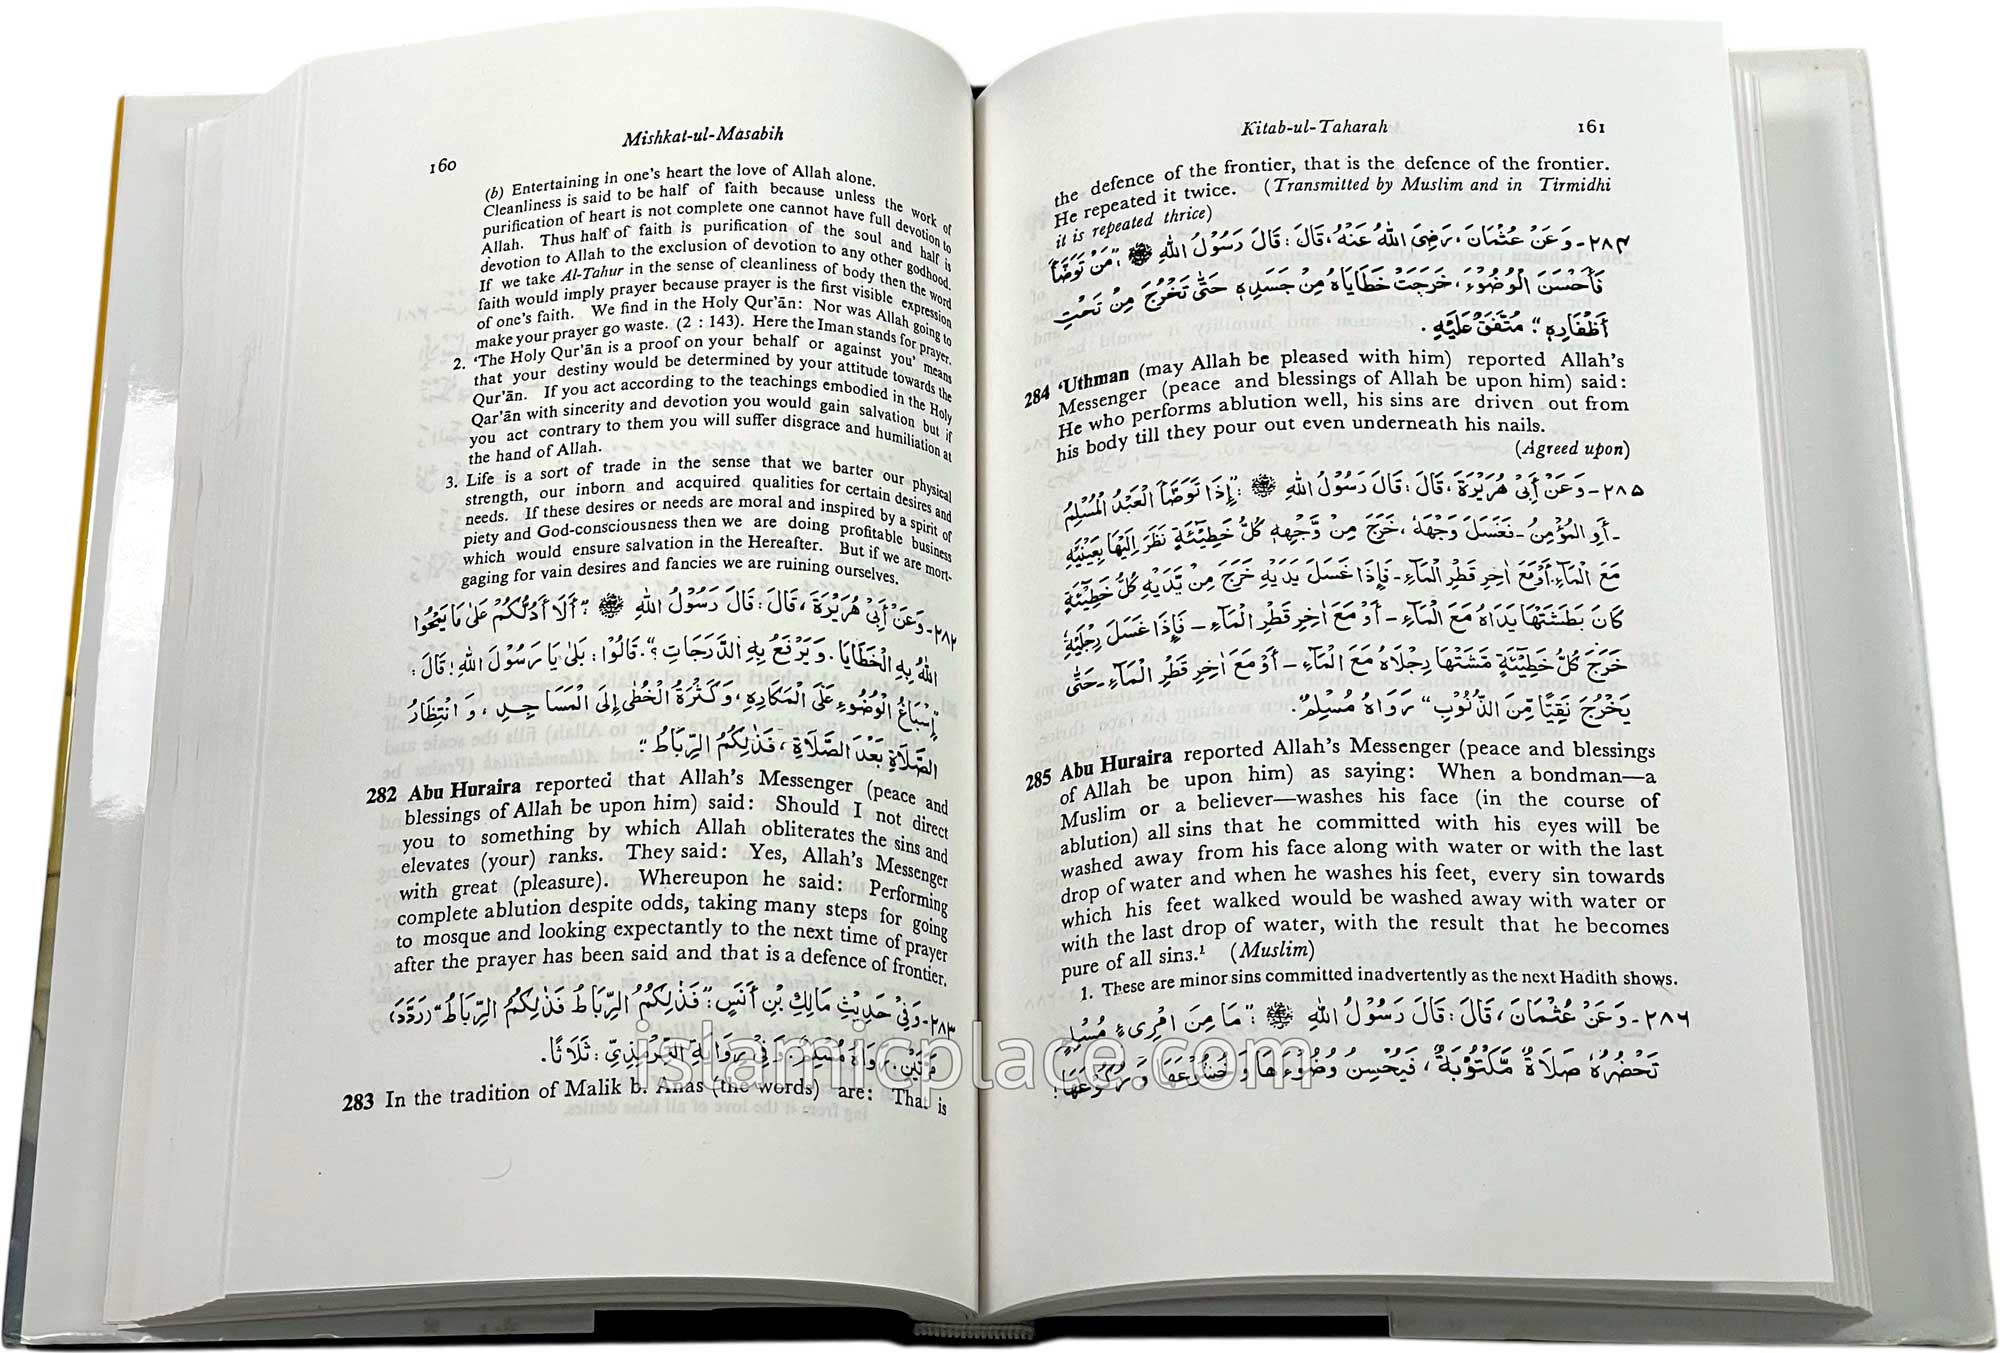 160
Mishkat-ul-Masabih
(b) Entertaining in one's heart the love of Allah alone.
Cleanliness is said to be half of faith because unless the work of
purification of heart is not complete one cannot have full devotion to
Allah. Thus half of faith is purification of the soul and half is
devotion to Allah to the exclusion of devotion to any other godhood.
If we take Al-Tahur in the sense of cleanliness of body then the word
faith would imply prayer because prayer is the first visible expression
of one's faith. We find in the Holy Qur'ān: Nor was Allah going to
make your prayer go waste. (2 : 143). Here the Iman stands for prayer.
2. 'The Holy Qur'ān is a proof on your behalf or against you' means
that your destiny would be determined by your attitude towards the
Qur'ān. If you act according to the teachings embodied in the Holy
Qar'ān with sincerity and devotion you would gain salvation but if
you act contrary to them you will suffer disgrace and humiliation at
the hand of Allah.
3. Life is a sort of trade in the sense that we barter our physical
strength, our inborn and acquired qualities for certain desires and
needs. If these desires or needs are moral and inspired by a spirit of
piety and God-consciousness then we are doing profitable business
which would ensure salvation in the Hereafter. But if we are mort-
gaging for vain desires and fancies we are ruining ourselves.
٢٨٢- وَعَنْ أَبِيْ هُرَيْرَةَ، قَالَ: قَالَ رَسُوْلُ اللهِ ﷺ: "أَلَا أَدُلُّكُمْ عَلٰى مَا يَمْحُوا
اللهُ بِهِ الْخَطَايَا. وَيَرْفَعُ بِهِ الدَّرَجَاتِ؟". قَالُوْا: بَلٰى يَا رَسُوْلَ اللهِ! قَالَ:
"إِسْبَاغُ الْوُضُوْءِ عَلَى الْمَكَارِهِ، وَكَثْرَةُ الْخُطٰى إِلَى الْمَسَاجِدِ، وَانْتِظَارُ
الصَّلَاةِ بَعْدَ الصَّلَاةِ، فَذٰلِكُمُ الرِّبَاطُ".
282 Abu Huraira reported that Allah's Messenger (peace and
blessings of Allah be upon him) said: Should I not direct
you to something by which Allah obliterates the sins and
elevates (your) ranks. They said: Yes, Allah's Messenger
with great (pleasure). Whereupon he said: Performing
complete ablution despite odds, taking many steps for going
to mosque and looking expectantly to the next time of prayer
after the prayer has been said and that is a defence of frontier.
٢٨٣- وَفِيْ حَدِيْثِ مَالِكِ بْنِ أَنَسٍ: "فَذٰلِكُمُ الرِّبَاطُ فَذٰلِكُمُ الرِّبَاطُ" (رَدَّدَ)
مَرَّتَيْنِ. رَوَاهُ مُسْلِمٌ. وَفِيْ رِوَايَةِ التِّرْمِذِيِّ: ثَلَاثًا.
283 In the tradition of Malik b. Anas (the words) are: That is
Kitab-ul-Taharah
161
the defence of the frontier, that is the defence of the frontier.
He repeated it twice. (Transmitted by Muslim and in Tirmidhi
it is repeated thrice)
٢٨٤- وَعَنْ عُثْمَانَ، رَضِيَ اللهُ عَنْهُ، قَالَ: قَالَ رَسُوْلُ اللهِ ﷺ: "مَنْ تَوَضَّأَ
فَأَحْسَنَ الْوُضُوْءَ، خَرَجَتْ خَطَايَاهُ مِنْ جَسَدِهٖ حَتّٰى تَخْرُجَ مِنْ تَحْتِ
أَظْفَارِهٖ". مُتَّفَقٌ عَلَيْهِ.
284 'Uthman (may Allah be pleased with him) reported Allah's
Messenger (peace and blessings of Allah be upon him) said:
He who performs ablution well, his sins are driven out from
his body till they pour out even underneath his nails.
(Agreed upon)
٢٨٥- وَعَنْ أَبِيْ هُرَيْرَةَ، قَالَ: قَالَ رَسُوْلُ اللهِ ﷺ: "إِذَا تَوَضَّأَ الْعَبْدُ الْمُسْلِمُ
-أَوِ الْمُؤْمِنُ- فَغَسَلَ وَجْهَهٗ، خَرَجَ مِنْ وَّجْهِهٖ كُلُّ خَطِيْئَةٍ نَظَرَ إِلَيْهَا بِعَيْنَيْهِ
مَعَ الْمَاءِ. أَوْ مَعَ اٰخِرِ قَطْرِ الْمَاءِ- فَإِذَا غَسَلَ يَدَيْهِ خَرَجَ مِنْ يَّدَيْهِ كُلُّ خَطِيْئَةٍ
كَانَ بَطَشَتْهَا يَدَاهُ مَعَ الْمَاءِ- أَوْ مَعَ اٰخِرِ قَطْرِ الْمَاءِ- فَإِذَا غَسَلَ رِجْلَيْهِ
خَرَجَ كُلُّ خَطِيْئَةٍ مَشَتْهَا رِجْلَاهُ مَعَ الْمَاءِ- أَوْ مَعَ اٰخِرِ قَطْرِ الْمَاءِ- حَتّٰى
يَخْرُجَ نَقِيًّا مِّنَ الذُّنُوْبِ" رَوَاهُ مُسْلِمٌ.
285 Abu Huraira reported Allah's Messenger (peace and blessings
of Allah be upon him) as saying: When a bondman—a
Muslim or a believer—washes his face (in the course of
ablution) all sins that he committed with his eyes will be
washed away from his face along with water or with the last
drop of water and when he washes his feet, every sin towards
which his feet walked would be washed away with water or
with the last drop of water, with the result that he becomes
pure of all sins.¹ (Muslim)
1. These are minor sins committed inadvertently as the next Hadith shows.
٢٨٦- وَعَنْ عُثْمَانَ، قَالَ: قَالَ رَسُوْلُ اللهِ ﷺ: "مَا مِنَ امْرِئٍ مُسْلِمٍ
تَحْضُرُهٗ صَلَاةٌ مَّكْتُوْبَةٌ، فَيُحْسِنُ وُضُوْءَهَا وَخُشُوْعَهَا وَرُكُوْعَهَا؛
islamicplace.com